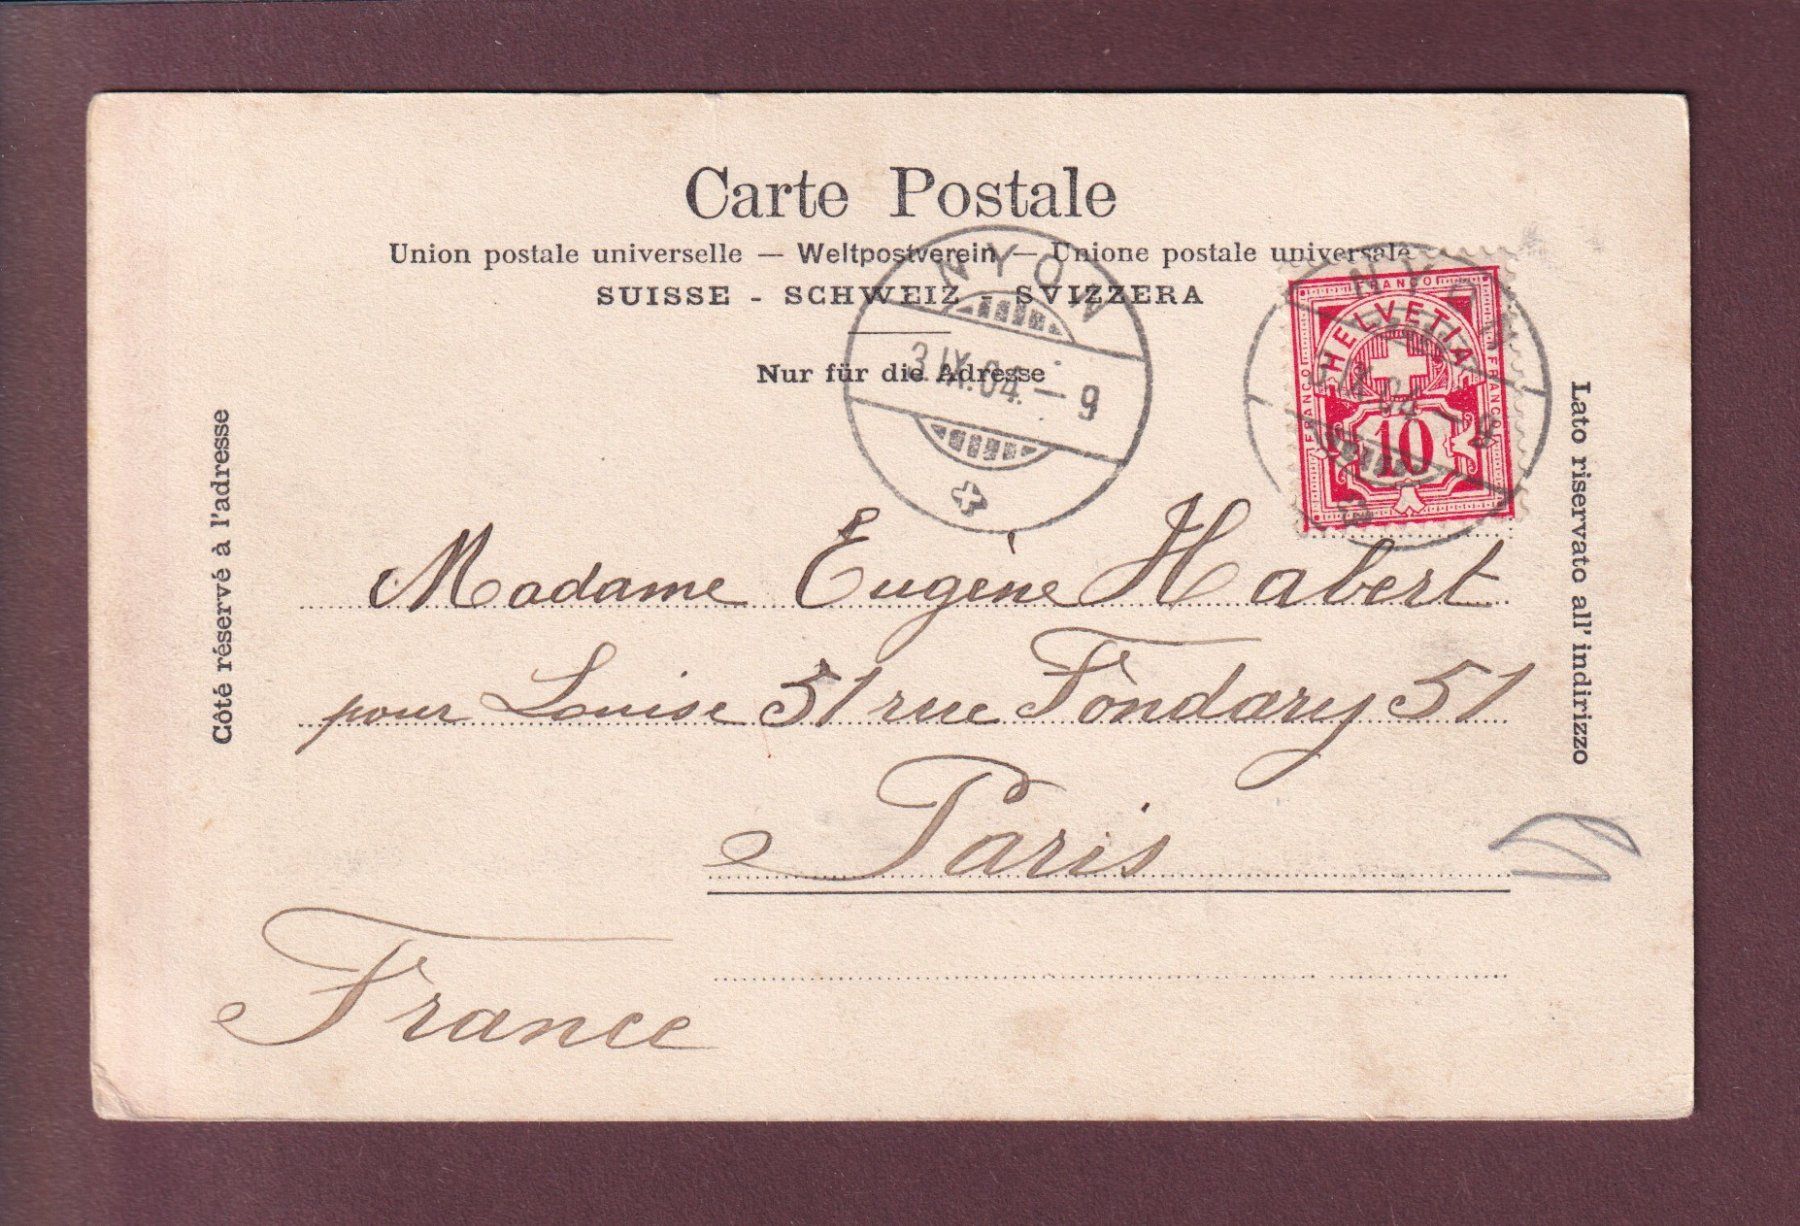 Carte Postale
Union postale universelle — Weltpostverein — Unione postale universale
SUISSE - SCHWEIZ - SVIZZERA
Nur für die Adresse
NYON
3 IX. 04. — 9
NYON
IX. 04
FRANCO
HELVETIA
FRANCO
FRANCO
10
Côté réservé à l'adresse
Lato riservato all' indirizzo
Madame Eugène Habert
pour Louise 51 rue Fondary 51
Paris
France